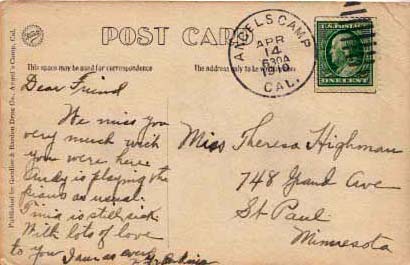 POST CARD
This space may be used for correspondence
The address only to be
Published by Gardine & Hunton Drug Co., Angel's Camp, Cal.
ANGELS CAMP
APR
14
630A
1910
CAL.
U.S. POSTAGE
ONE CENT
Dear Friend
We miss you
very much wish
you were here
Andy is playing the
piano as usual.
Tinia is still sick
With lots of love
to you I am as ever
Miss Theresa Highman
748 Grand Ave
St Paul
Minnesota